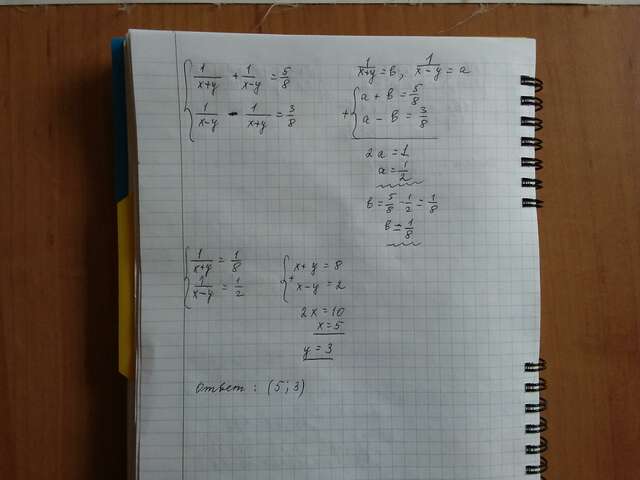 1/(x+y) + 1/(x-y) = 5/8
1/(x-y) - 1/(x+y) = 3/8
1/(x+y) = в, 1/(x-y) = a
+ { a + в = 5/8
a - в = 3/8
2a = 1
a = 1/2
в = 5/8 - 1/2 = 1/8
в = 1/8
1/(x+y) = 1/8
1/(x-y) = 1/2
+ { x+y = 8
x-y = 2
2x = 10
x = 5
y = 3
Ответ: (5; 3)